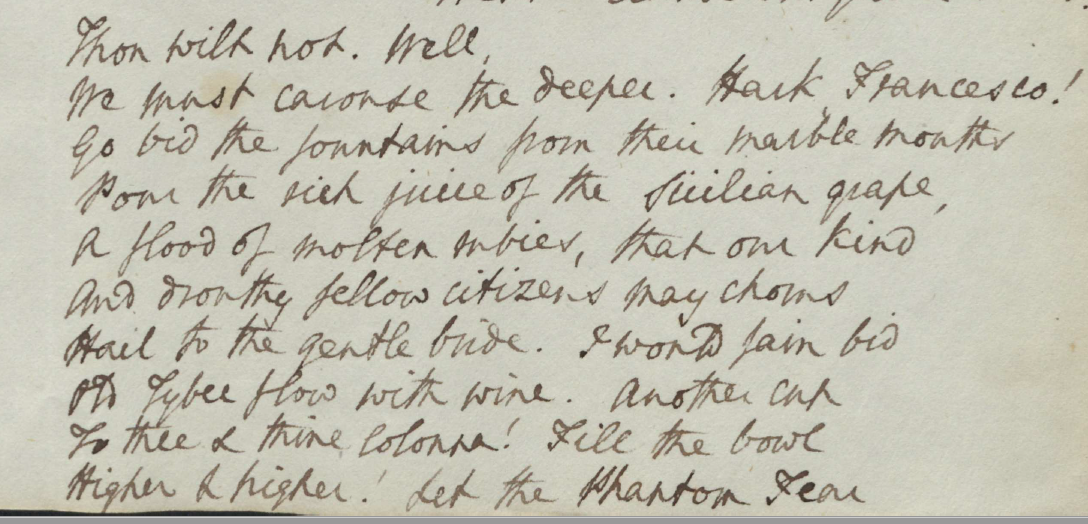 Thou wilt not. Well,
We must carouse the deeper. Hark, Francesco!
Go bid the fountains from their marble mouths
Pour the rich juice of the Sicilian grape,
A flood of molten rubies, that our kind
And drouthy fellow citizens may chorus
Hail to the gentle bride. I would fain bid
Old Tyber flow with wine. Another cup
To thee & thine Colonna! Fill the bowl
Higher & higher! Let the Phantom Fear